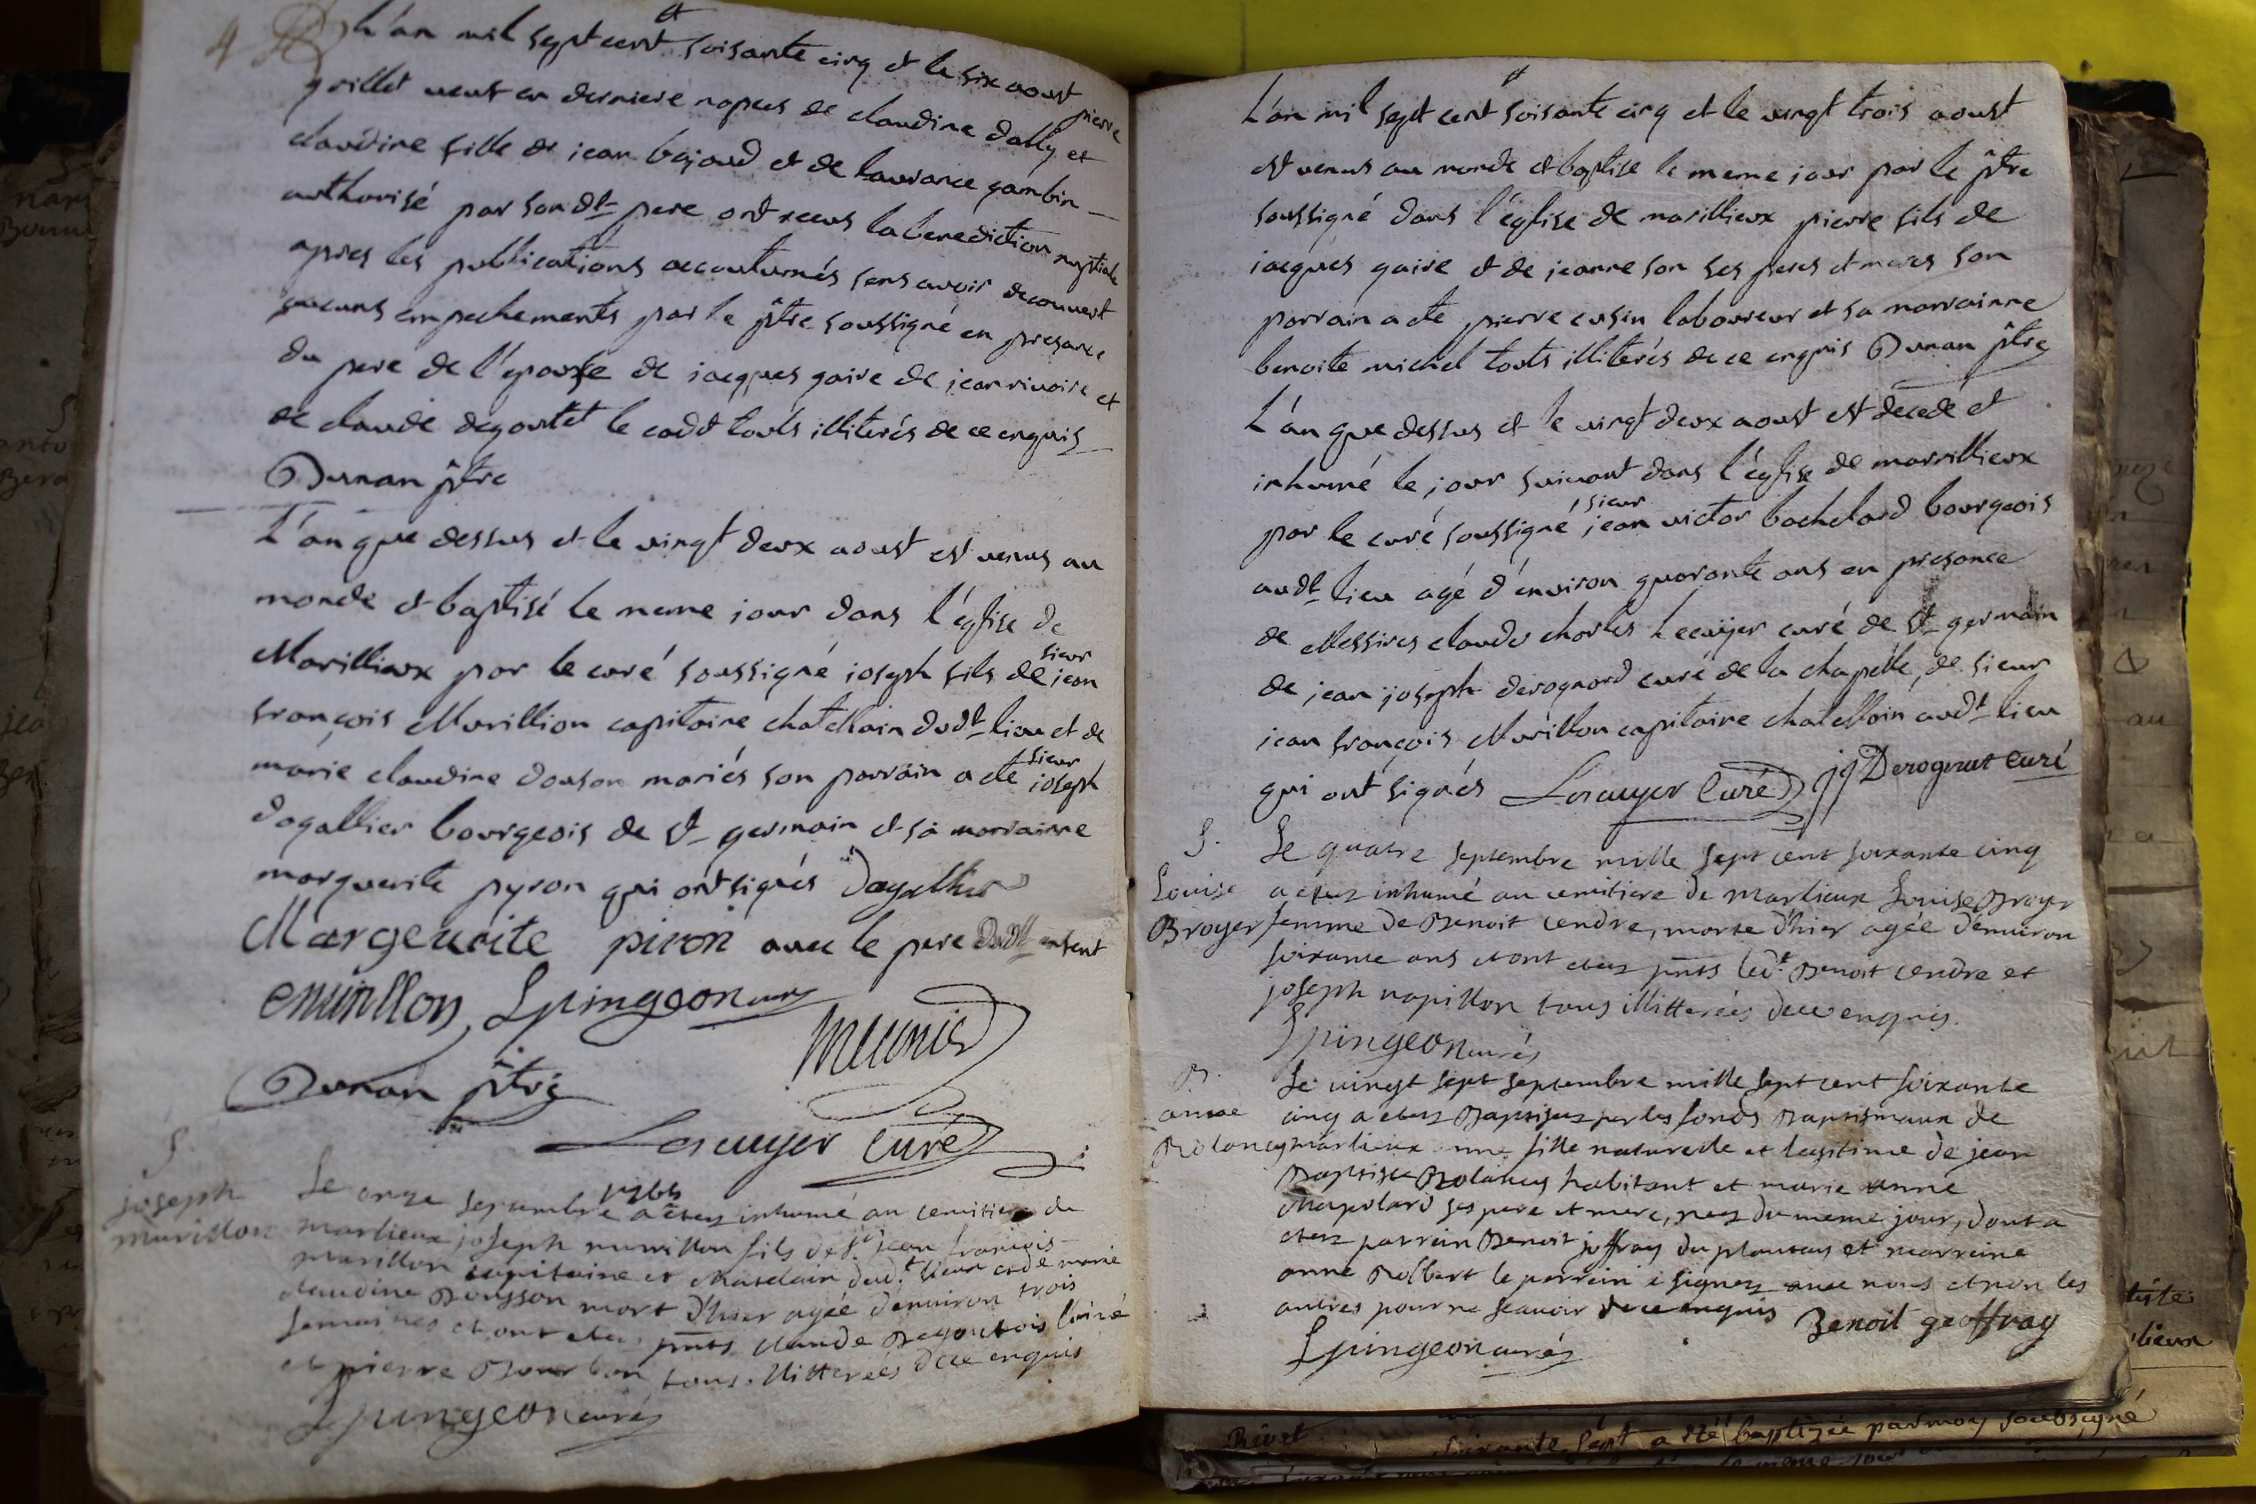 L'an mil sept cent soisante cinq et le six aoust pierre
grillet veuf en derniere nopces de claudine dally et
claudine fille de jean bajoud et de laurance gambin
authorisé par son dt pere ont receus la benediction nuptiale
apres les publications accoutumés sans avoir decouvert
aucuns empechements par le ptre soussigné en presance
du pere de l'epouse de jacques gaire de jean rivoire et
de claude degoutet le cadd touts illiterés de ce enquis
Dunan ptre
L'an que dessus et le vingt deux aoust est venus au
monde et baptisé le meme jour dans l'église de
Marillieux par le curé soussigné joseph fils de sieur jean
françois Murillion capitaine chatellain dudt lieu et de
marie claudine douson mariés son parrain a eté sieur joseph
dagallier bourgeois de St germain et sa marrainne
marguerite pyron qui ont signés Dagallier
Margeurite piron avec le pere dudt enfent
emurillon, Spingeon curé
meunier
Dunan ptre
Lecuyer Curé
S.
joseph
murillon
Le onze septembre 1765 a étez inhumé au cemitiere de
marlieux joseph murillon fils de Sr jean françois
murillon capitaine et chatelain dud.t lieu et de marie
claudine Dousson mort d'hier agée d'environ trois
semaines et ont etez pnts claude Degoutois l'ainé
et pierre Bourbon tous illitterées de ce enquis
Spingeon curés
L'an mil sept cent soisante cinq et le vingt trois aoust
est venus au monde et baptise le meme jour par le ptre
soussigné dans l'église de marillieux pierre fils de
jacques gaire et de jeanne son ses peres et meres son
parrain a ete pierre cusin laboureur et sa marrainne
benoite michel touts illiterés de ce enquis Dunan ptre
L'an que dessus et le vingt deux aoust est decede et
inhumé le jour suivant dans l'église de marrillieux
par le curé soussigné sieur jean victor bachelard bourgeois
audt lieu agé d'environ quarante ans en presance
de Messires claude charles Lecuÿer curé de St germain
de jean joseph derognard curé de la chapelle, de sieur
jean françois Murillon capitaine chatellain audt lieu
qui ont signés Lecuyer Curé jj Derognat curé
S.
Louise
Broyer
Le quatre septembre mille sept cent soixante cinq
a étez inhumé au cemitiere de marlieux Louise Broyer
femme de Benoit Cendre, morte d'hier agée d'environ
soixante ans et ont etez pnts led.t Benoit Cendre et
joseph napillon tous illitterées de ce enquis.
Spingeon curés
B.
anne
Bolancy
Le vingt sept septembre mille sept cent soixante
cinq a étez Baptisez par les fonds Baptismaux de
marlieux anne fille naturelle et legitime de jean
Baptiste Bolancy habitant et marie anne
chapolard ses pere et mere, nez du meme jour, dont a
etez parrein Benoit joffray du plantay et marreine
anne Rolbert le parrein a signez avec nous et non les
autres pour ne scavoir de ce enquis Benoit geoffray
Spingeon curés
Rivet
soixante sept a été baptizée par moy soubsigné